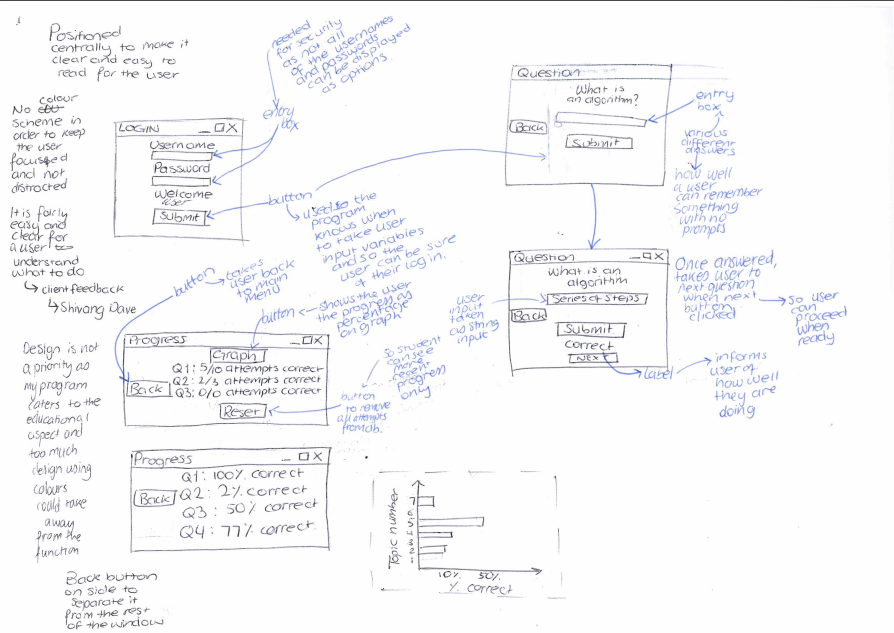 Positioned
centrally to make it
clear and easy to
read for the user
No colour
scheme in
order to keep
the user
focussed
and not
distracted
It is fairly
easy and
clear for
a user to
understand
what to do
client feedback
Shivang Dave
Design is not
a priority as
my program
caters to the
educational
aspect and
too much
design using
colours
could take
away
from the
function
Back button
on side to
separate it
from the rest
of the window
needed
for security
as not all
of the usernames
and passwords
can be displayed
as options
entry
box
LOGIN
Username
Password
Welcome
user
Submit
button
used so the
program
knows when
to take user
input variables
and so the
user can be sure
of their log in.
button
takes
user back
to main
menu
button
shows the user
the progress as
percentage
on graph
Progress
Graph
Q1: 5/10 attempts correct
Q2: 2/3 attempts correct
Q3: 0/0 attempts correct
Back
Reset
button
to remove
all attempts
from db.
so student
can see
more
recent
progress
only
Progress
Q1: 100% correct
Back
Q2: 2% correct
Q3: 50% correct
Q4: 77% correct
Question
What is
an algorithm?
Back
Submit
entry
box
various
different
answers
how well
a user
can remember
something
with no
prompts
Question
What is an
algorithm
Series of steps
Back
Submit
correct
Next
user
input
taken
as string
input
Once answered,
takes user to
next question
when next
button
clicked
so user
can
proceed
when
ready
label
informs
user of
how well
they are
doing
Topic number
7
6
5
4
3
2
1
10% 50%
% correct